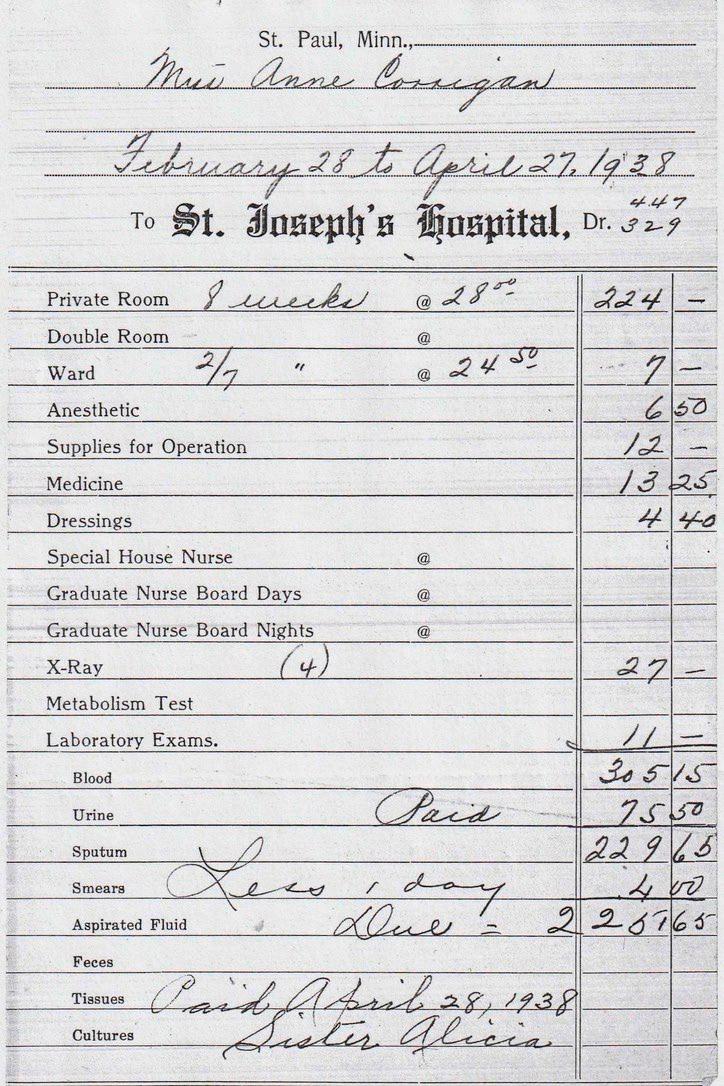 St. Paul, Minn.,
Miss Anne Corrigan
February 28 to April 27, 1938
447
To St. Joseph's Hospital, Dr. 329
Private Room 8 weeks @ 28 00 224 —
Double Room @
Ward 2/7 " @ 24 50 7 —
Anesthetic 6 50
Supplies for Operation 12 —
Medicine 13 25
Dressings 4 40
Special House Nurse @
Graduate Nurse Board Days @
Graduate Nurse Board Nights @
X-Ray (4) 27 —
Metabolism Test
Laboratory Exams. 11 —
Blood 305 15
Urine Paid 75 50
Sputum 229 65
Smears Less 1 day 4 00
Aspirated Fluid Due = 225 65
Feces
Tissues Paid April 28, 1938
Cultures Sister Alicia